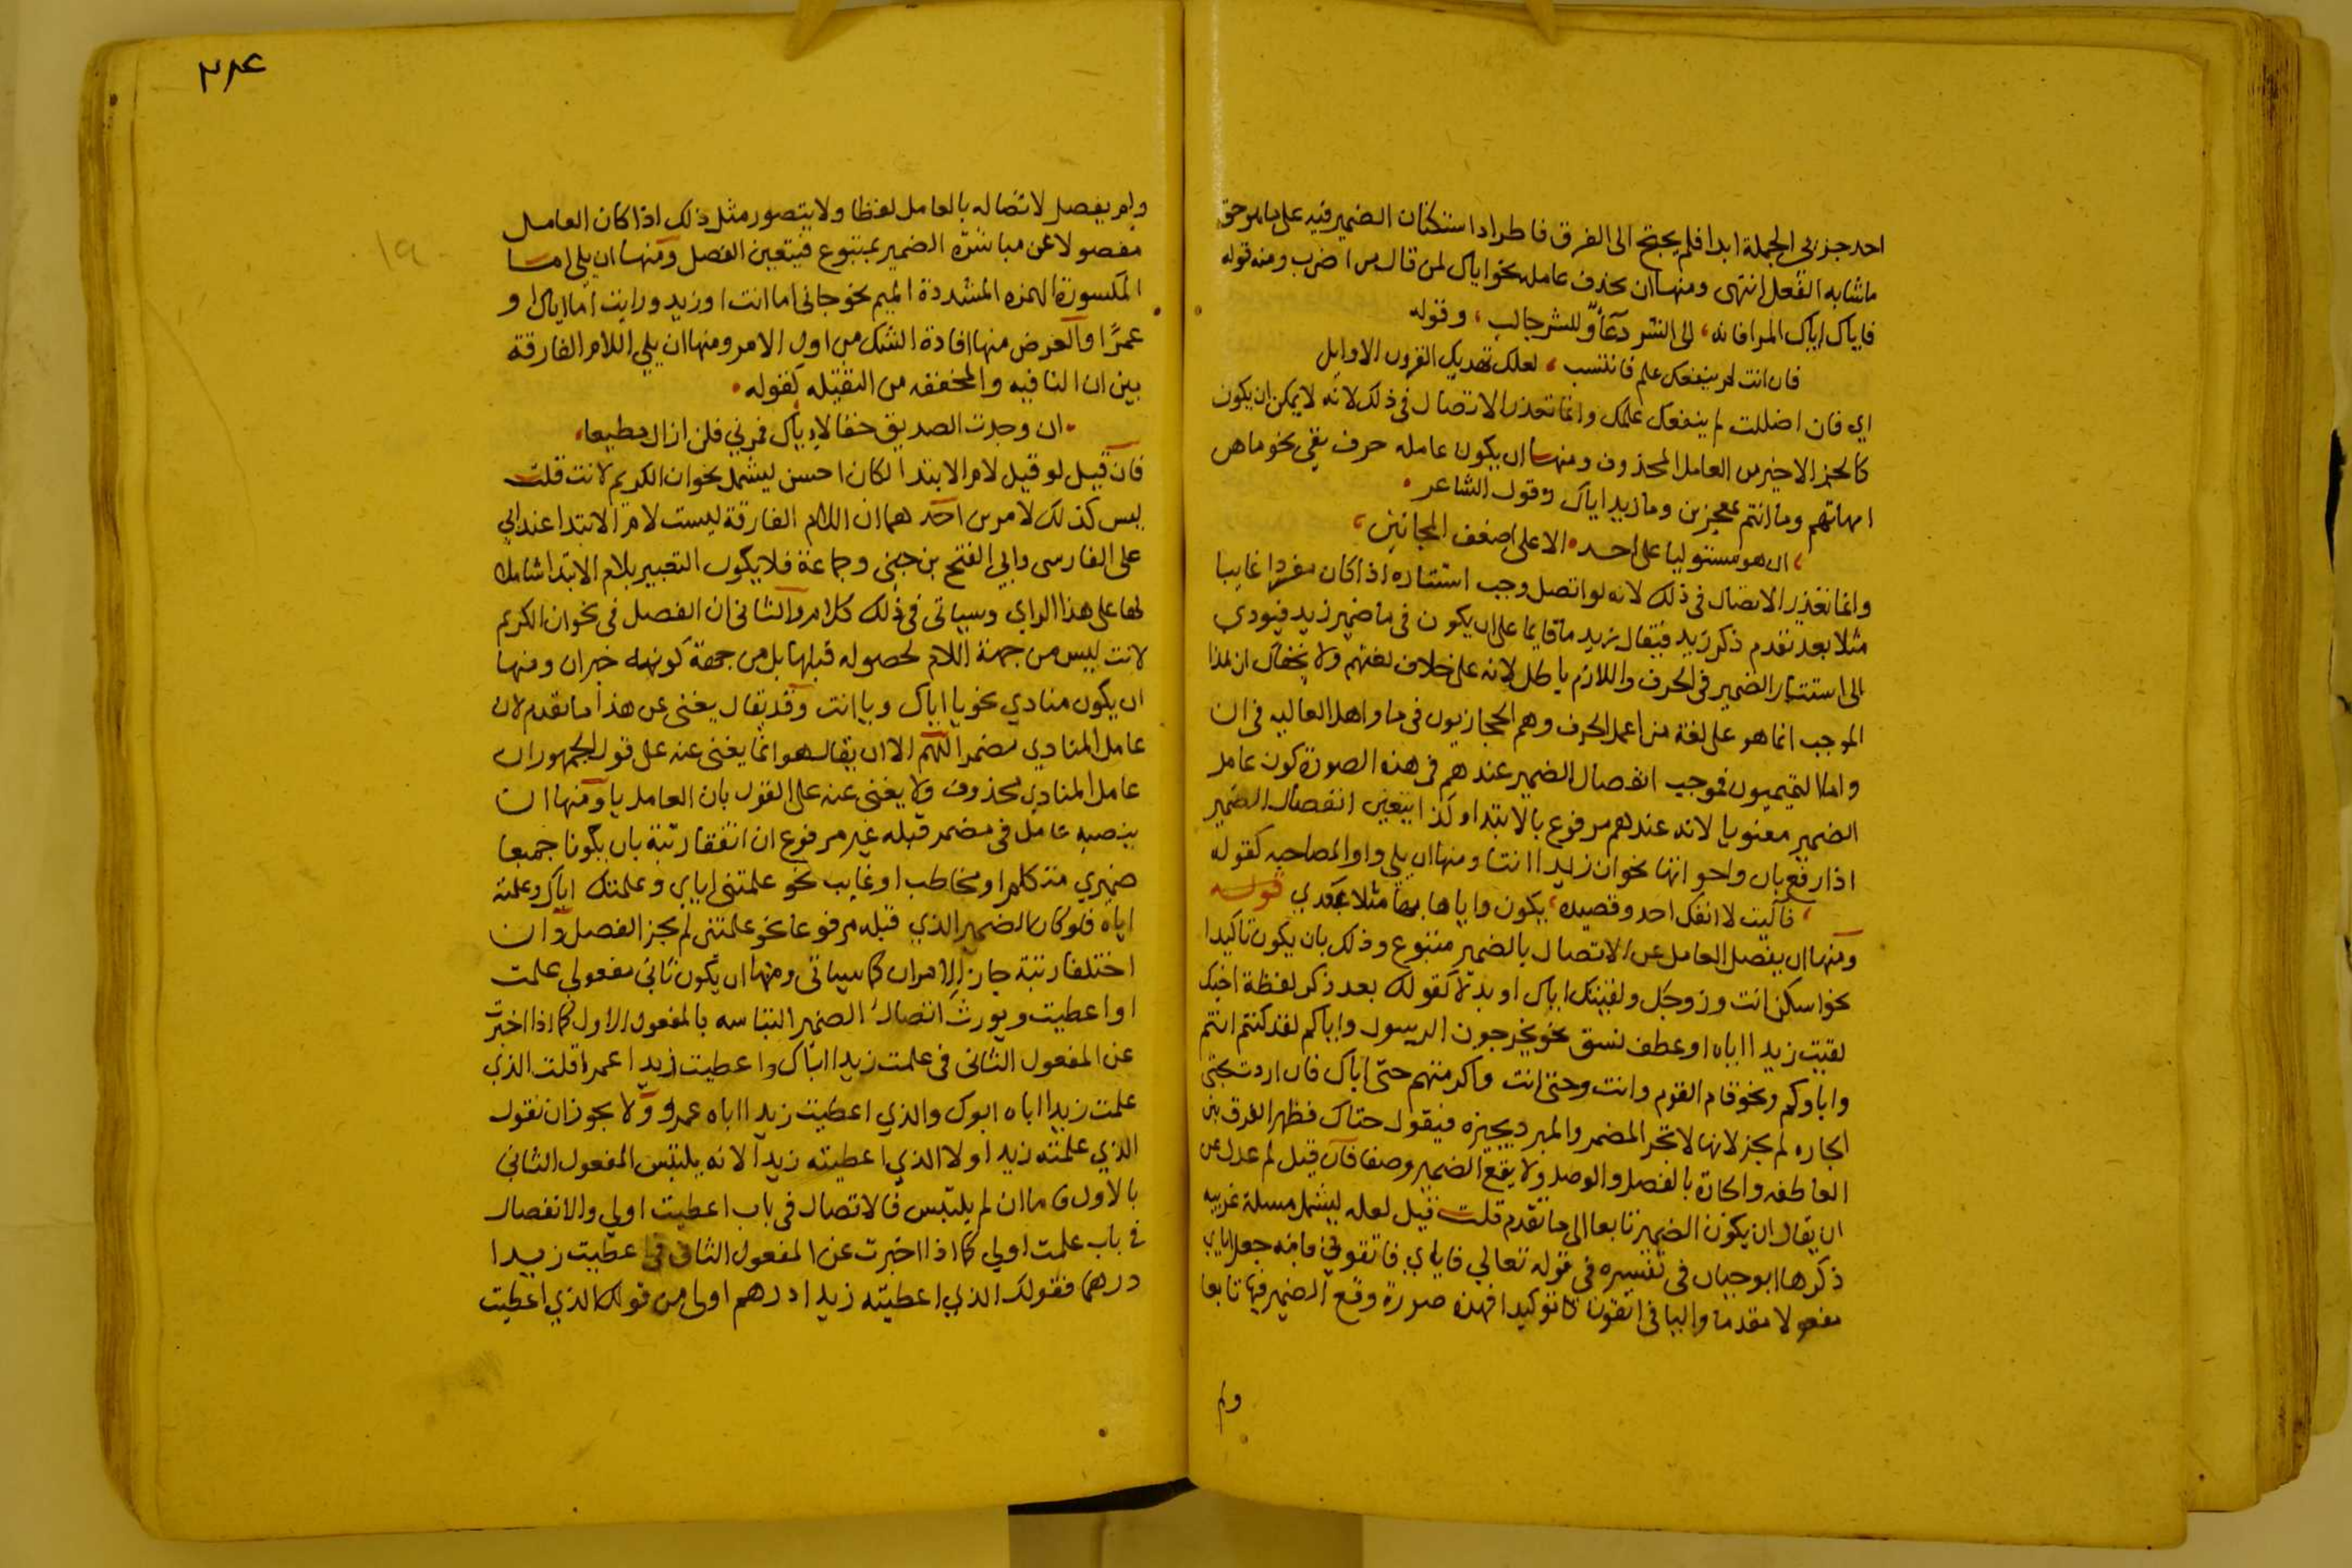 احد جزءى الجملة ابدا فلم يحتج الى الفرق فاطراد استكنان الضمير فيه على ما هو حق
ما شابه الفعل انتهى ومنها ان يحذف عامله نحو اياك لمن قال من اضرب ومنه قوله
فاياك اياك المرا فانه، الى الشر دعاء وللشر جالب، وقوله
فان انت لم ينفعك علم فانتسب، لعلك تهديك القرون الاوايل
اي فان اضللت لم ينفعك علمك وانما تعذر الاتصال في ذلك لانه لا يمكن ان يكون
كالجز الاخير من العامل المحذوف ومنها ان يكون عامله حرف نفي نحو ما هن
امهاتهم وما انتم بمعجزين وما زيد اياك وقول الشاعر
، ان هو مستوليا على احد • الا على اضعف المجانين،
وانما تعذر الاتصال في ذلك لانه لو اتصل وجب استتاره اذا كان مفردا غايبا
مثلا بعد تقدم ذكر زيد فيقال زيد ما قايما على ان يكون في ما ضمير زيد فيودي
الى استتار الضمير في الحرف واللازم باطل لانه على خلاف لغتهم ولا يخفاك ان هذا
الموجب انما هو على لغة من اعمل الحرف وهم الحجازيون في ما واهل العاليه في ان
واما التميميون فموجب انفصال الضمير عندهم في هذه الصورة كون عامل
الضمير معنويا لانه عندهم مرفوع بالابتدا وكذا يتعين انفصال الضمير
اذا رفع بان واخواتها نحو ان زيدا انتا ومنها ان يلي واو المصاحبه كقوله
، فآليت لا انفك احد وقصيده، يكون واياها بها مثلا بعدي قوله
ومنها ان يفصل العامل عن الاتصال بالضمير متبوع وذلك بان يكون تاكيدا
نحو اسكن انت وزوجك ولقيتك اياك او بدلا كقولك بعد ذكر لفظة اخيك
لقيت زيدا اياه او عطف نسق نحو يخرجون الرسول واياكم لقد كنتم انتم
واباوكم ونحو قام القوم وانت وحتى انت واكرمتهم حتى اياك فان اردت بحتى
الجاره لم يجز لانها لا تجر المضمر والمبرد يجيزه فيقول حتاك فظهر الفرق بين
العاطفه والجارة بالفصل والوصل ولا يقع الضمير وصفا فان قيل لم عدل عن
ان يقال ان يكون الضمير تابعا الى ما تقدم قلت قيل لعله ليشمل مسلة غريبه
ذكرها ابو حيان في تفسيره في قوله تعالى فاياي فاتقون فانه جعل اياي
مفعولا مقدما واليا في اتقون تاكيدا فهذه صورة وقع الضمير فيها تابعا
ولم
٣٨٤
ولم يفصل لاتصاله بالعامل لفظا ولا يتصور مثل ذلك اذا كان العامل
مفصولا عن مباشرة الضمير بمتبوع فيتعين الفصل ومنها ان يلي اما
المكسورة الهمزه المشددة الميم نحو جاني اما انت او زيد ورايت اما اياك او
عمرًا والغرض منها افادة الشك من اول الامر ومنها ان يلي اللام الفارقة
بين ان النافيه والمخففه من الثقيله كقوله •
• ان وجدت الصديق حقا لاياك فمرني فلن ازال مطيعا،
فان قيل لو قيل لام الابتدا لكان احسن ليشمل نحو ان الكريم لانت قلت
ليس كذلك لامرين احدهما ان اللام الفارقة ليست لام الابتدا عند ابي
على الفارسي وابي الفتح بن جني وجماعة فلا يكون التعبير بلام الابتدا شاملا
لها على هذا الراي وسياتي في ذلك كلام والثاني ان الفصل في نحو ان الكريم
لانت ليس من جهة اللام لحصوله قبلها بل من جهة كونه خبر ان ومنها
ان يكون منادي نحو يا اياك ويا انت وقد يقال يغني عن هذا ما تقدم لان
عامل المنادي مضمر اللهم الا ان يقال هو انما يغني عنه على قول الجمهور ان
عامل المنادي محذوف ولا يغني عنه على القول بان العامل يا ومنها ان
ينصبه عامل في مضمر قبله غير مرفوع ان اتفقا رتبة بان يكونا جميعا
ضميري متكلم او مخاطب او غايب نحو علمتني اياي وعلمتك اياك وعلمته
اياه فلو كان الضمير الذي قبله مرفوعا نحو علمتني لم يجز الفصل وان
اختلفا رتبة جاز الامران كما سياتي ومنها ان يكون ثاني مفعولي علمت
او اعطيت ويورث اتصال الضمير التباسه بالمفعول الاول كما اذا اخبرت
عن المفعول الثاني في علمت زيدا اباك واعطيت زيدا عمرا قلت الذي
علمت زيدا اياه ابوك والذي اعطيت زيدا اياه عمرو ولا يجوز ان تقول
الذي علمته زيدا ولا الذي اعطيته زيدا لانه يلتبس المفعول الثاني
بالاول واما ان لم يلتبس فالاتصال في باب اعطيت اولي والانفصال
في باب علمت اولي كما اذا اخبرت عن المفعول الثاني في اعطيت زيدا
درهما فقولك الذي اعطيته زيدا درهم اولى من قولك الذي اعطيت